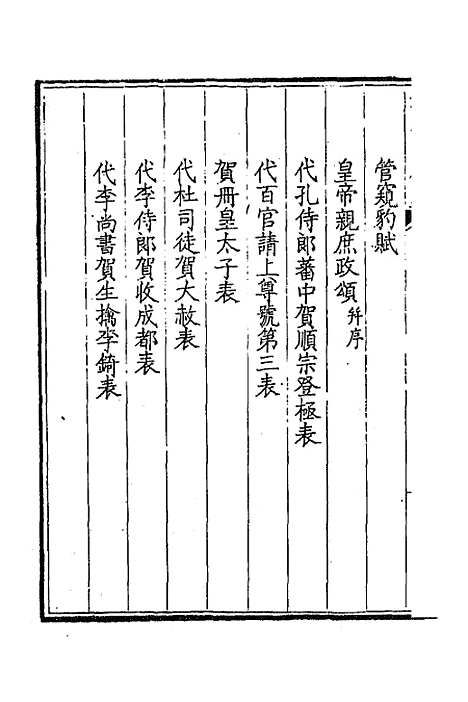 管窺豹賦
皇帝親庶政頌并序
代孔侍郎蕃中賀順宗登極表
代百官請上尊號第三表
賀冊皇太子表
代杜司徒賀大赦表
代李侍郎賀收成都表
代李尚書賀生擒李錡表